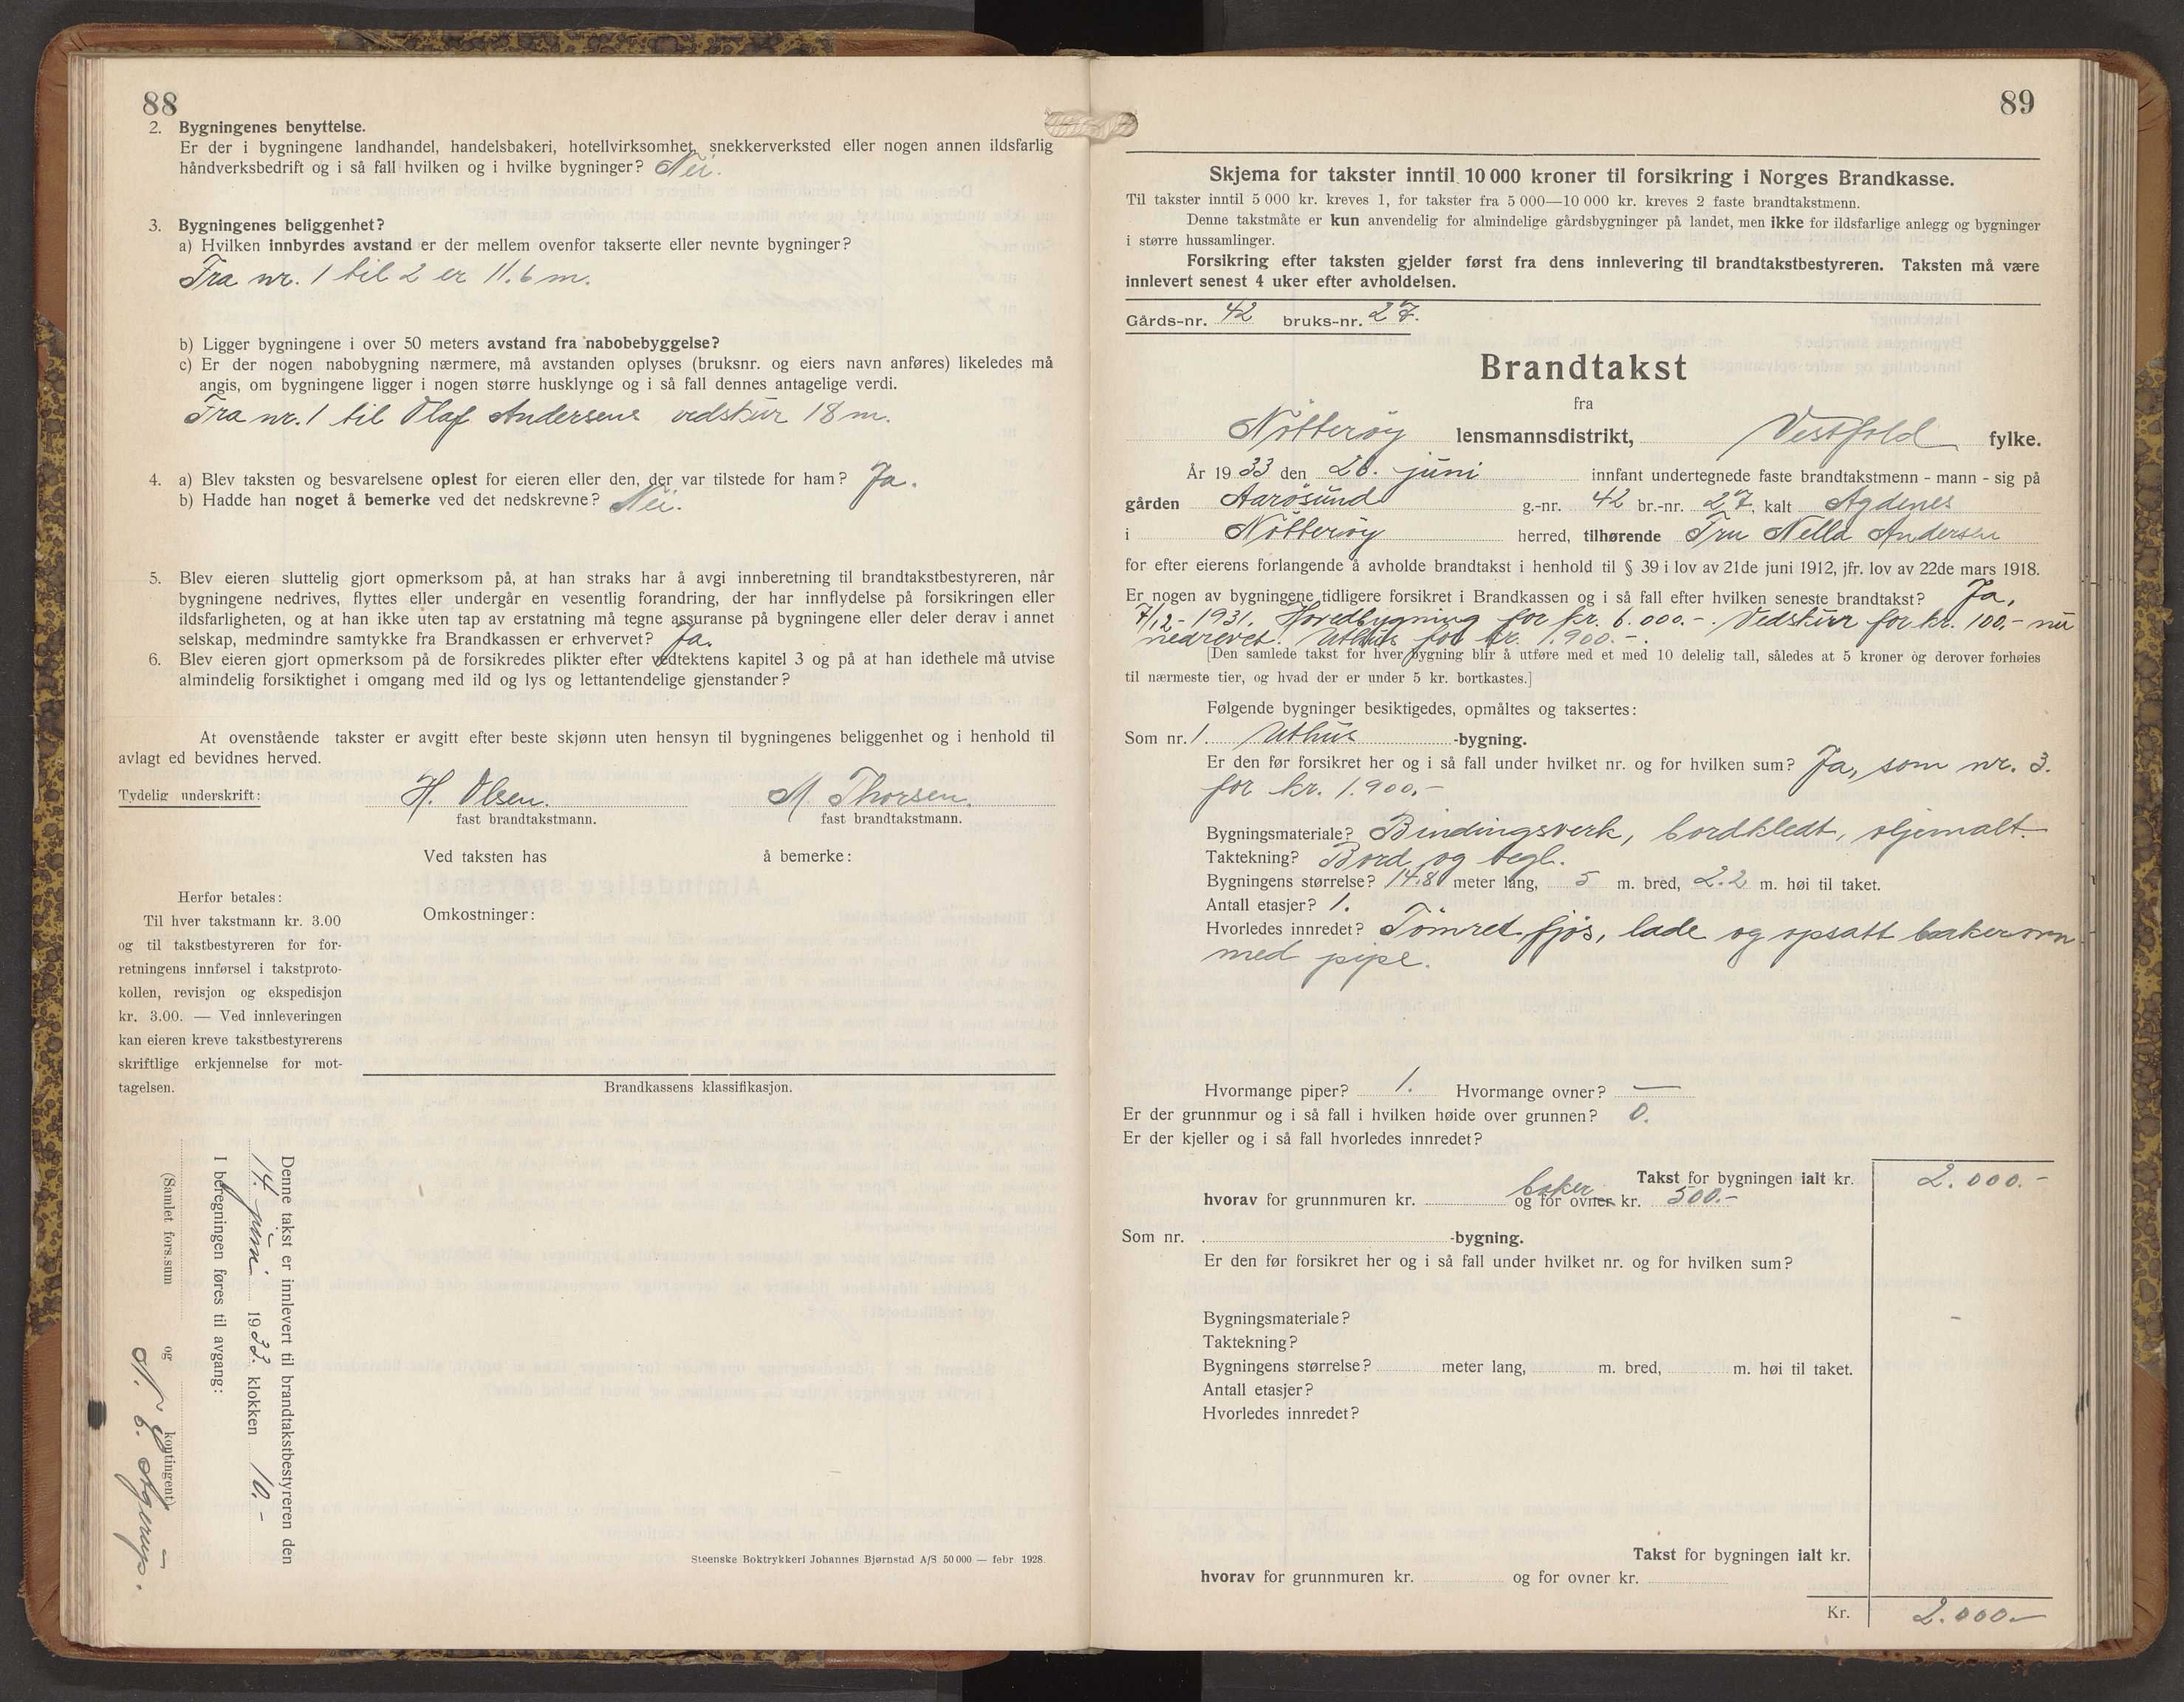 88
2. Bygningenes benyttelse.
Er der i bygningene landhandel, handelsbakeri, hotellvirksomhet, snekkerverksted eller nogen annen ildsfarlig
håndverksbedrift og i så fall hvilken og i hvilke bygninger? Nei.
3. Bygningenes beliggenhet?
a) Hvilken innbyrdes avstand er der mellem ovenfor takserte eller nevnte bygninger?
Fra nr. 1 til 2 er 11.6 m.
b) Ligger bygningene i over 50 meters avstand fra nabobebyggelse?
c) Er der nogen nabobygning nærmere, må avstanden oplyses (bruksnr. og eiers navn anføres) likeledes må
angis, om bygningene ligger i nogen større husklynge og i så fall dennes antagelige verdi.
Fra nr. 1 til Olaf Andersens vedskur 18 m.
4. a) Blev taksten og besvarelsene oplest for eieren eller den, der var tilstede for ham? Ja.
b) Hadde han noget å bemerke ved det nedskrevne? Nei.
5. Blev eieren sluttelig gjort opmerksom på, at han straks har å avgi innberetning til brandtakstbestyreren, når
bygningene nedrives, flyttes eller undergår en vesentlig forandring, der har innflydelse på forsikringen eller
ildsfarligheten, og at han ikke uten tap av erstatning må tegne assuranse på bygningene eller deler derav i annet
selskap, medmindre samtykke fra Brandkassen er erhvervet? Ja.
6. Blev eieren gjort opmerksom på de forsikredes plikter efter vedtektens kapitel 3 og på at han idethele må utvise
almindelig forsiktighet i omgang med ild og lys og lettantendelige gjenstander?
At ovenstående takster er avgitt efter beste skjønn uten hensyn til bygningenes beliggenhet og i henhold til
avlagt ed bevidnes herved.
Tydelig underskrift: H. Olsen. M. Thorsen.
fast brandtakstmann. fast brandtakstmann.
Ved taksten has å bemerke:
Herfor betales:
Til hver takstmann kr. 3.00
og til takstbestyreren for for-
retningens innførsel i takstproto-
kollen, revisjon og ekspedisjon
kr. 3.00. — Ved innleveringen
kan eieren kreve takstbestyrerens
skriftlige erkjennelse for mot-
tagelsen.
Omkostninger:
Brandkassens klassifikasjon.
Denne takst er innlevert til brandtakstbestyreren den
14. juni 1933. klokken 10.-
I beregningen føres til avgang:
(Samlet fors.sum og kontingent)
Steenske Boktrykkeri Johannes Bjørnstad A/S 50 000 — febr 1928.
89
Skjema for takster inntil 10 000 kroner til forsikring i Norges Brandkasse.
Til takster inntil 5 000 kr. kreves 1, for takster fra 5 000—10 000 kr. kreves 2 faste brandtakstmenn.
Denne takstmåte er kun anvendelig for almindelige gårdsbygninger på landet, men ikke for ildsfarlige anlegg og bygninger
i større hussamlinger.
Forsikring efter taksten gjelder først fra dens innlevering til brandtakstbestyreren. Taksten må være
innlevert senest 4 uker efter avholdelsen.
Gårds-nr. 42 bruks-nr. 27.
Brandtakst
fra
Nötteröy lensmannsdistrikt, Vestfold fylke.
År 1933 den 26. juni innfant undertegnede faste brandtakstmenn - mann - sig på
gården Aarösund g.-nr. 42 br.-nr. 27, kalt Agdenes
i Nötteröy herred, tilhørende Fru Nella Andersen
for efter eierens forlangende å avholde brandtakst i henhold til § 39 i lov av 21de juni 1912, jfr. lov av 22de mars 1918.
Er nogen av bygningene tidligere forsikret i Brandkassen og i så fall efter hvilken seneste brandtakst? Ja,
7/12-1931. Hovedbygning for kr. 6.000.-. Vedskur for kr. 100.- nu
nedrevet. Uthus for kr. 1.900.-.
[Den samlede takst for hver bygning blir å utføre med et med 10 delelig tall, således at 5 kroner og derover forhøies
til nærmeste tier, og hvad der er under 5 kr. bortkastes.]
Følgende bygninger besiktigedes, opmåltes og taksertes:
Som nr. 1. Uthus -bygning.
Er den før forsikret her og i så fall under hvilket nr. og for hvilken sum? Ja, som nr. 3.
for kr. 1.900.-
Bygningsmateriale? Bindingsverk, bordkledt, oljemalt.
Taktekning? Bord og tegl.
Bygningens størrelse? 14.8 meter lang, 5 m. bred, 2.2 m. høi til taket.
Antall etasjer? 1.
Hvorledes innredet? Tömret fjös, lade og opsatt bakerovn
med pipe.
Hvormange piper? 1. Hvormange ovner? —
Er der grunnmur og i så fall i hvilken høide over grunnen? 0.
Er der kjeller og i så fall hvorledes innredet?
Takst for bygningen ialt kr. 2.000.-
hvorav for grunnmuren kr. og for baker ovner kr. 500.-
Som nr. -bygning.
Er den før forsikret her og i så fall under hvilket nr. og for hvilken sum?
Bygningsmateriale?
Taktekning?
Bygningens størrelse? meter lang, m. bred, m. høi til taket.
Antall etasjer?
Hvorledes innredet?
Takst for bygningen ialt kr.
hvorav for grunnmuren kr. og for ovner kr.
Kr. 2.000.-